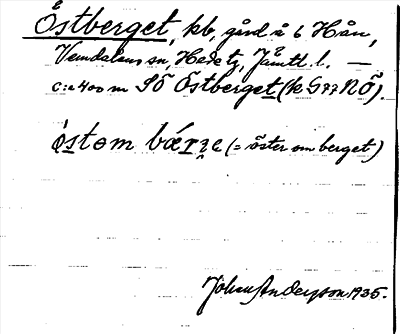 Östberget, kb, gård å 6 Hån,
Vemdalens sn, Hede tg, Jämtl. l. —
c:a 400 m SÖ Östberget (k G 77 NÖ).
östom bærze (= öster om berget)
Johan Anderson 1935.